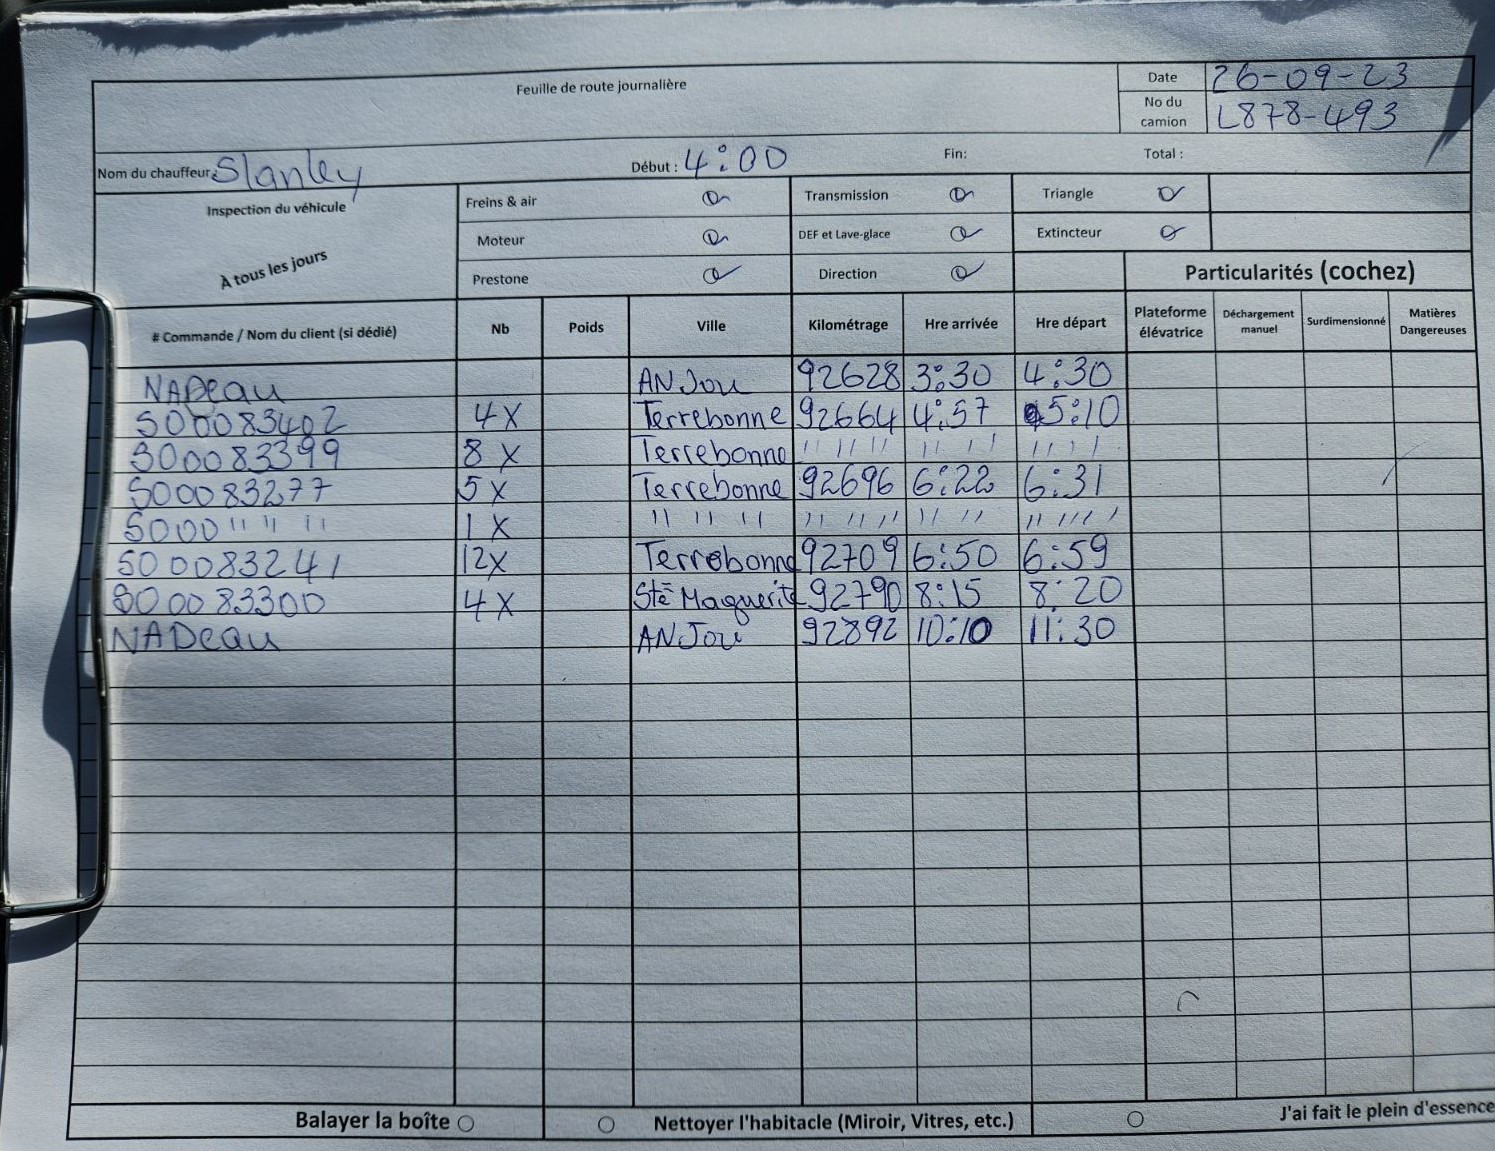 Feuille de route journalière
Date 26-09-23
No du camion L878-493
Nom du chauffeur: Stanley Début : 4:00 Fin: Total :
Inspection du véhicule
À tous les jours
Freins & air Transmission Triangle
Moteur DEF et Lave-glace Extincteur
Prestone Direction
Particularités (cochez)
# Commande / Nom du client (si dédié) Nb Poids Ville Kilométrage Hre arrivée Hre départ Plateforme élévatrice Déchargement manuel Surdimensionné Matières Dangereuses
NADeau ANJou 92628 3:30 4:30
S00083402 4X Terrebonne 92664 4:57 5:10
S00083399 8 X Terrebonne " " " " " " "
S00083277 5 X Terrebonne 92696 6:22 6:31
S000 " " " 1 X " " " " " " " " " "
S00083241 12X Terrebonne 92709 6:50 6:59
S00083300 4 X Ste Maguerite 92790 8:15 8:20
NADeau ANJou 92892 10:10 11:30
Balayer la boîte Nettoyer l'habitacle (Miroir, Vitres, etc.) J'ai fait le plein d'essence